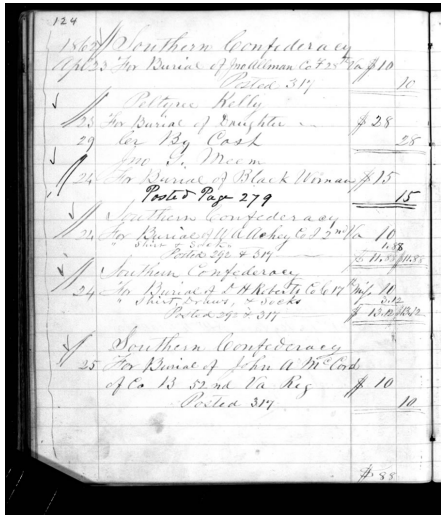 124
1862 Southern Confederacy
Apl 23 For Burial of Co F 28th Va $10
Posted 317 10
Kelly
23 For Burial of Daughter $28
29 Cr By Cash 28
Jno Meem
24 For Burial of Black Woman $15
Posted Page 279 15
Southern Confederacy
24 For Burial of Co I 2nd Va 10
Shirt & Socks 1.88
Posted 292 & 317 $11.88 $11.88
Southern Confederacy
24 For Burial of D H Roberts Co C 17th Mis. 10
" Shirt, Draws, & Socks 3.12
Posted 292 & 317 $13.12 $13.12
Southern Confederacy
25 For Burial of John A McCord
of Co B 52nd Va Reg $10
Posted 317 10
$88